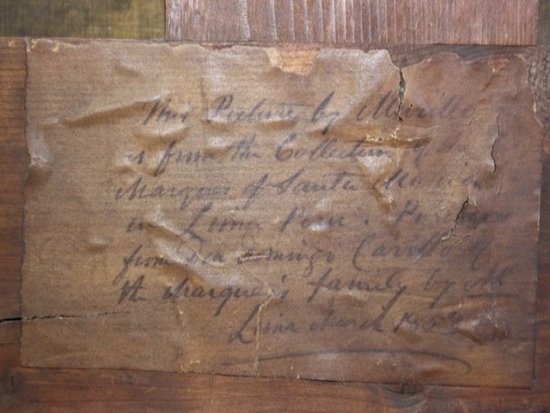 This Picture by Murillo
is from the Collection of the
Marques of Santa Maria
in Lima Peru.
from Domingo Carrillo of
the Marques's family by
Lima March